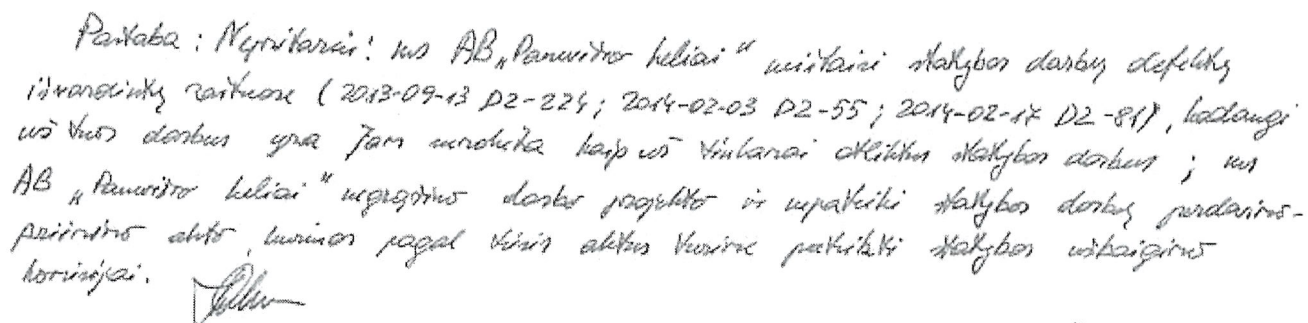 Pastaba : Nepritariu! nes AB „Panevėžio keliai“ neištaisė statybos darbų defektų
išvardintų raštuose (2013-09-13 D2-224; 2014-02-03 D2-55; 2014-02-17 D2-81), kadangi
už tuos darbus yra jam sumokėta kaip už tinkamai atliktus statybos darbus ; nes
AB „Panevėžio keliai“ negrąžino darbo projekto ir nepateikė statybos darbų perdavimo-
priėmimo akto, kuriuos pagal teisės aktus turime pateikti statybos užbaigimo
komisijai.